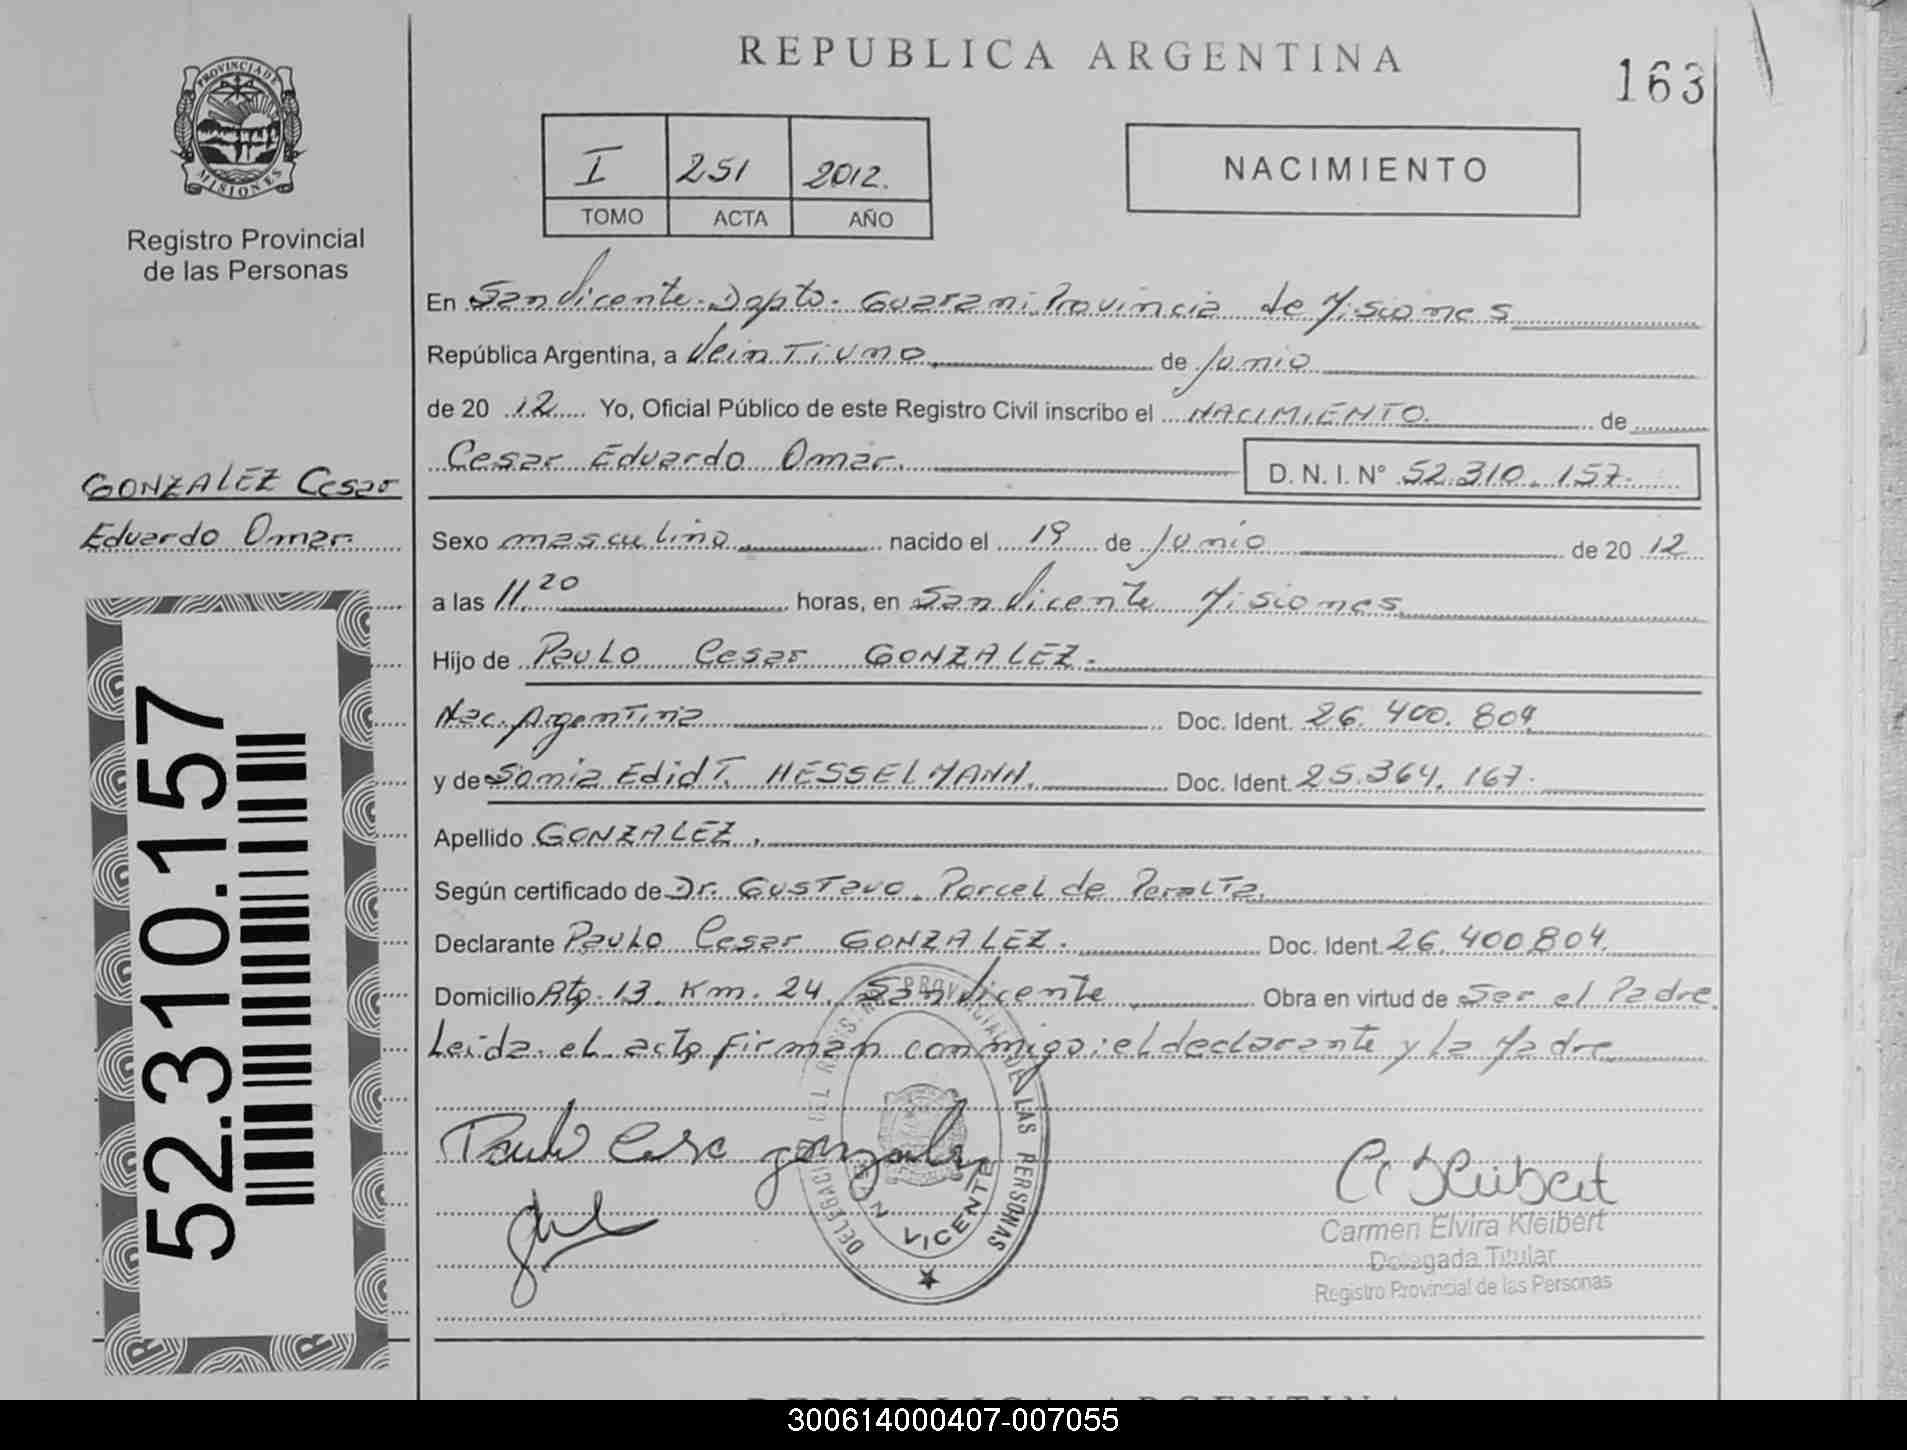 REPUBLICA ARGENTINA
163
PROVINCIA DE
MISIONES
Registro Provincial
de las Personas
I 251 2012.
TOMO ACTA AÑO
NACIMIENTO
En San Vicente. Dapto. Guarani. Provincia de Misiones
República Argentina, a Veintiuno de Junio
de 2012 Yo, Oficial Público de este Registro Civil inscribo el NACIMIENTO. de
Cesar Eduardo Omar. D. N. I. N° 52.310.157.
GONZALEZ Cesar
Eduardo Omar.
Sexo masculino nacido el 19 de Junio de 2012
a las 11.20 horas, en San Vicente Misiones
Hijo de Paulo Cesar GONZALEZ.
Nac. Argentina Doc. Ident. 26.400.804
y de Sonia Edidt. HESSELMANN. Doc. Ident. 25.364.167.
Apellido GONZALEZ.
Según certificado de Dr. Gustavo Porcel de Peralta.
Declarante Paulo Cesar GONZALEZ. Doc. Ident. 26.400804.
Domicilio Rta. 13. Km. 24. San Vicente Obra en virtud de Ser el Padre.
Leida el acta firman conmigo: el declarante y la Madre
Paulo Cesar gonzalez
DELEGACION DEL REGISTRO PROVINCIAL DE LAS PERSONAS
SAN VICENTE
C E Kleibert
Carmen Elvira Kleibert
Delegada Titular
Registro Provincial de las Personas
52.310.157
REPUBLICA ARGENTINA
300614000407-007055